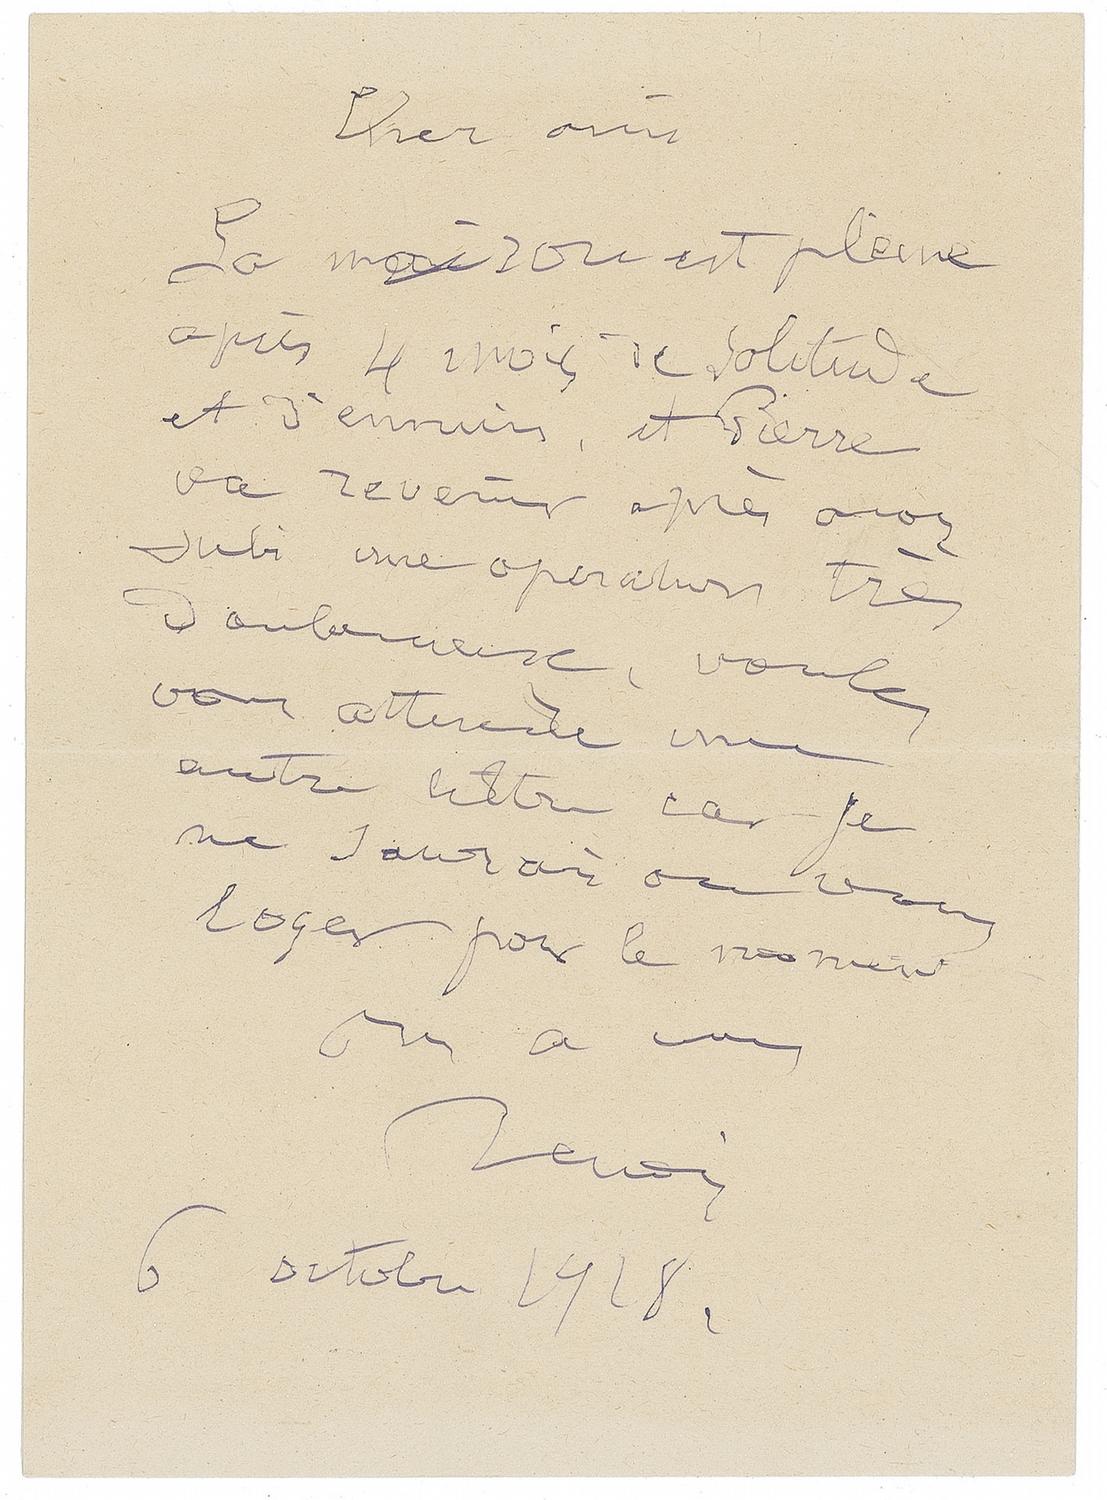 Cher ami
La maison est pleine
après 4 mois de solitude
et d'ennuis, et Pierre
va revenir après avoir
subi une operation très
douloureuse, voulez
vous attendre une
autre lettre car je
ne saurai ou vous
loger pour le moment
a vous
Renoir
6 octobre 1918.